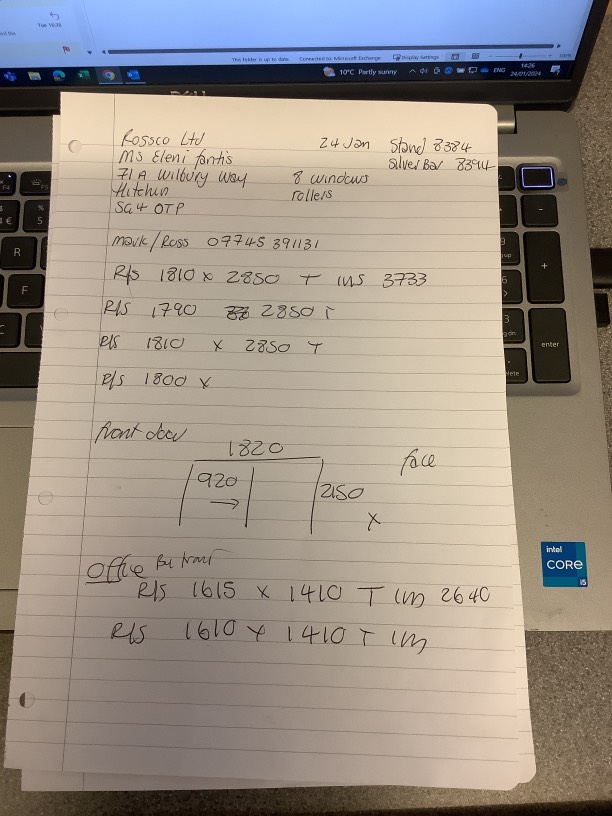 This folder is up to date. Connected to: Microsoft Exchange Display Settings
10°C Partly sunny ENG 14:26
24/01/2024
Rossco Ltd 24 Jan Stand 8384
Ms Eleni fantis Silver Bar 8394
71A Wilbury Way 8 windows
Hitchin rollers
SG4 OTP
Mark/Ross 07745 391131
R/s 1810 x 2850 T ins 3733
R/s 1790 2850 T
R/s 1810 x 2850 T
R/s 1800 x
front door
1820 face
920 2150
→ x
Office front
R/s 1615 x 1410 T 1m 2640
R/s 1610 x 1410 T 1m
R
F
enter
intel
CORE
i5